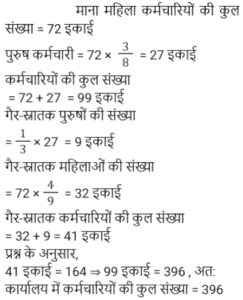 माना महिला कर्मचारियों की कुल
संख्या = 72 इकाई
पुरुष कर्मचारी = 72 × 3/8 = 27 इकाई
कर्मचारियों की कुल संख्या
= 72 + 27 = 99 इकाई
गैर-स्नातक पुरुषों की संख्या
= 1/3 × 27 = 9 इकाई
गैर-स्नातक महिलाओं की संख्या
= 72 × 4/9 = 32 इकाई
गैर-स्नातक कर्मचारियों की कुल संख्या
= 32 + 9 = 41 इकाई
प्रश्न के अनुसार,
41 इकाई = 164 ⇒ 99 इकाई = 396 , अत:
कार्यालय में कर्मचारियों की कुल संख्या = 396